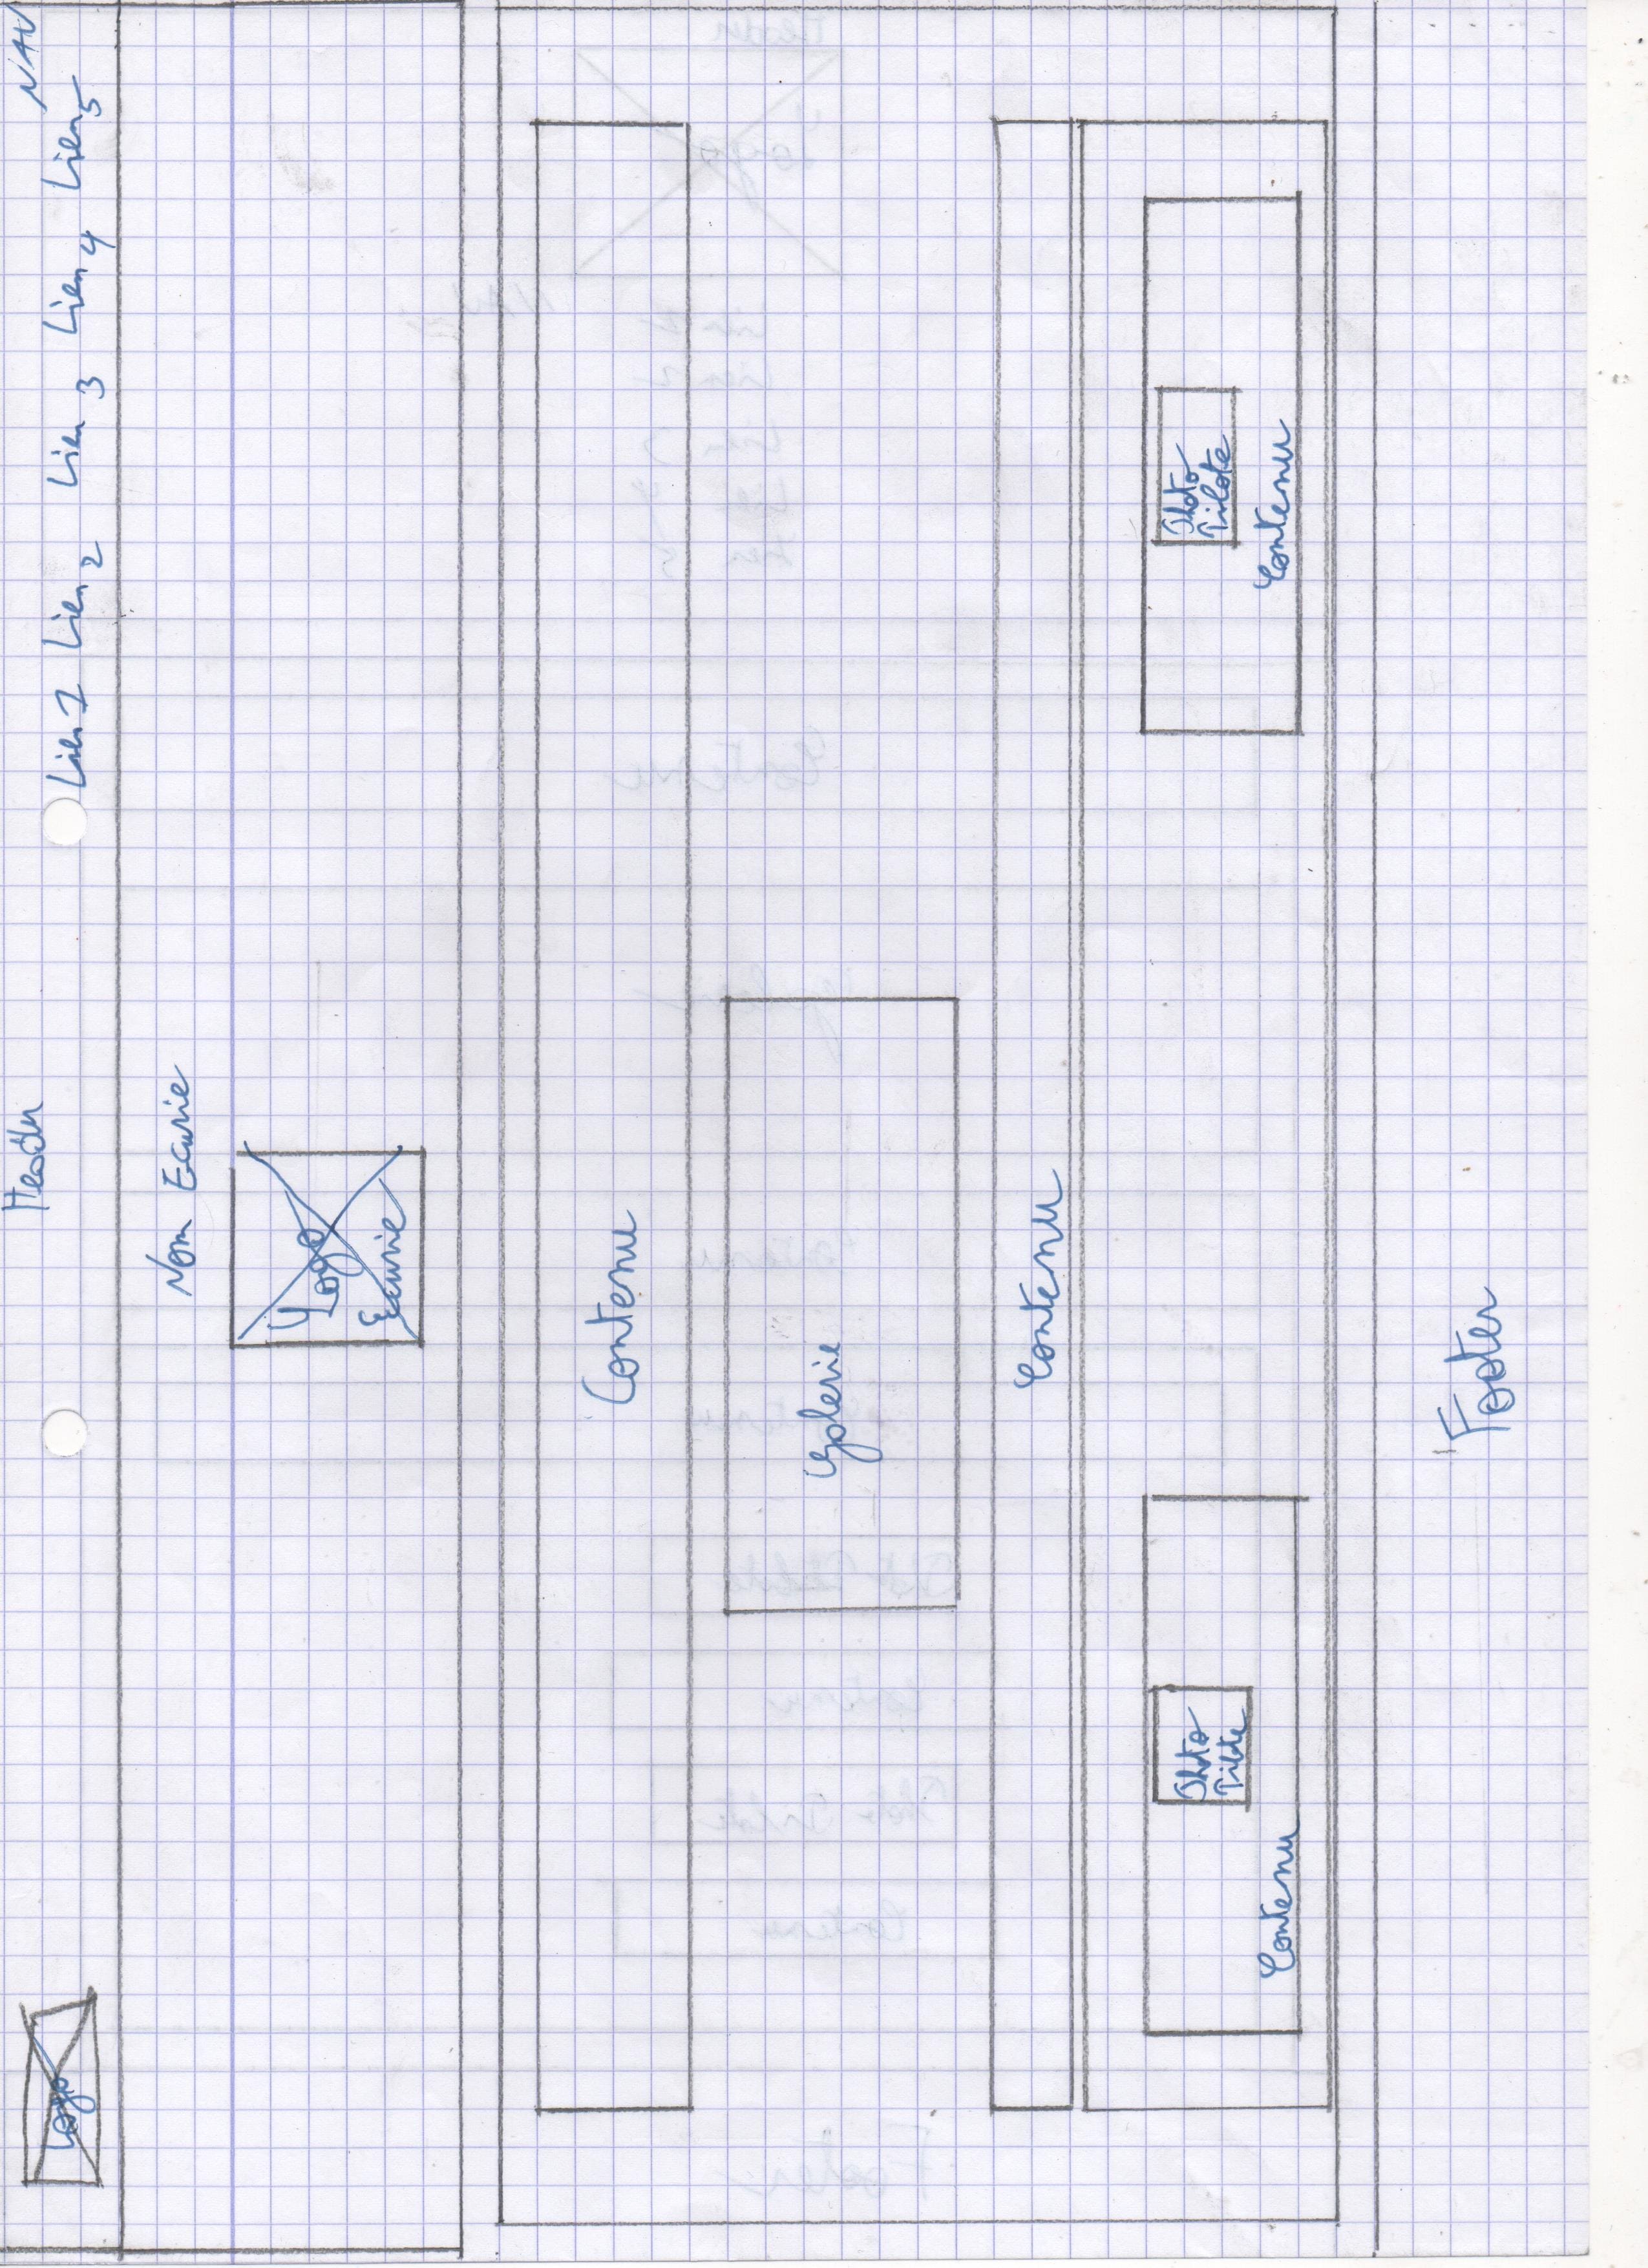 Header
NAV
Logo
Lien 1 Lien 2 Lien 3 Lien 4 Lien 5
Nom Ecurie
Logo
Ecurie
Contenu
Galerie
Contenu
Photo
Pilote
Contenu
Photo
Pilote
Contenu
Footer